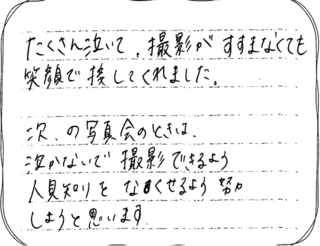 たくさん泣いて、撮影がすすまなくても
笑顔で接してくれました。
次、の写真会のときは、
泣かないで撮影できるよう
人見知りをなくせるよう努力
しようと思います